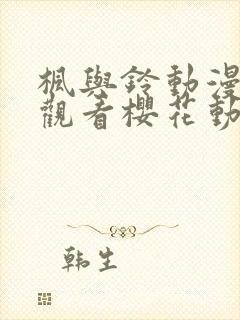 楓與鈴動漫
觀看櫻花動
韩生